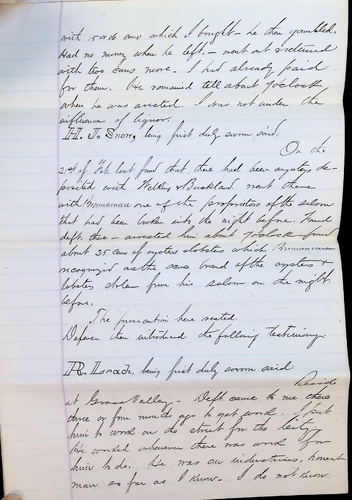 with 15 or 16 cans which I bought - he then gambled.
Had no money when he left, - went out & returned
with two cans more. I had already paid
for them. He remained till about 7 o'clock
when he was arrested. I was not under the
influence of liquor.
H. T. Snow, being first duly sworn said,
On the
2nd of Feb last found that there had been oysters de-
posited with & Buckland. went there
with one of the proprietors of the saloon
that had been broken into the night before. Found
deft. there - arrested him about 7 o'clock - found
about 35 cans of oysters & lobsters which
recognized as the same brand of the oysters &
lobsters stolen from his saloon on the night
before.
The prosecution here rested.
Defense then introduced the following testimony.
R. Leach, being first duly sworn said.
Reside
at Grass Valley - Deft came to me there
three or four months ago to get work. I put
him to work on the street for the
He worked whenever there was work for
him to do. He was an industrious, honest
man as far as I know. I do not know